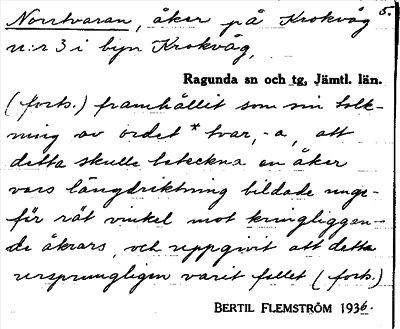 5.
Norrtvaran, åker på Krokvåg
n:r 3 i byn Krokvåg,
Ragunda sn och tg, Jämtl. län.
(forts.) framhållit som sin tolk-
ning av ordet *tvar, -a, att
detta skulle beteckna en åker
vars längdriktning bildade unge-
för rät vinkel mot kringliggan-
de åkrars, och uppgivit att detta
ursprungligen varit fallet (forts.)
BERTIL FLEMSTRÖM 1936.